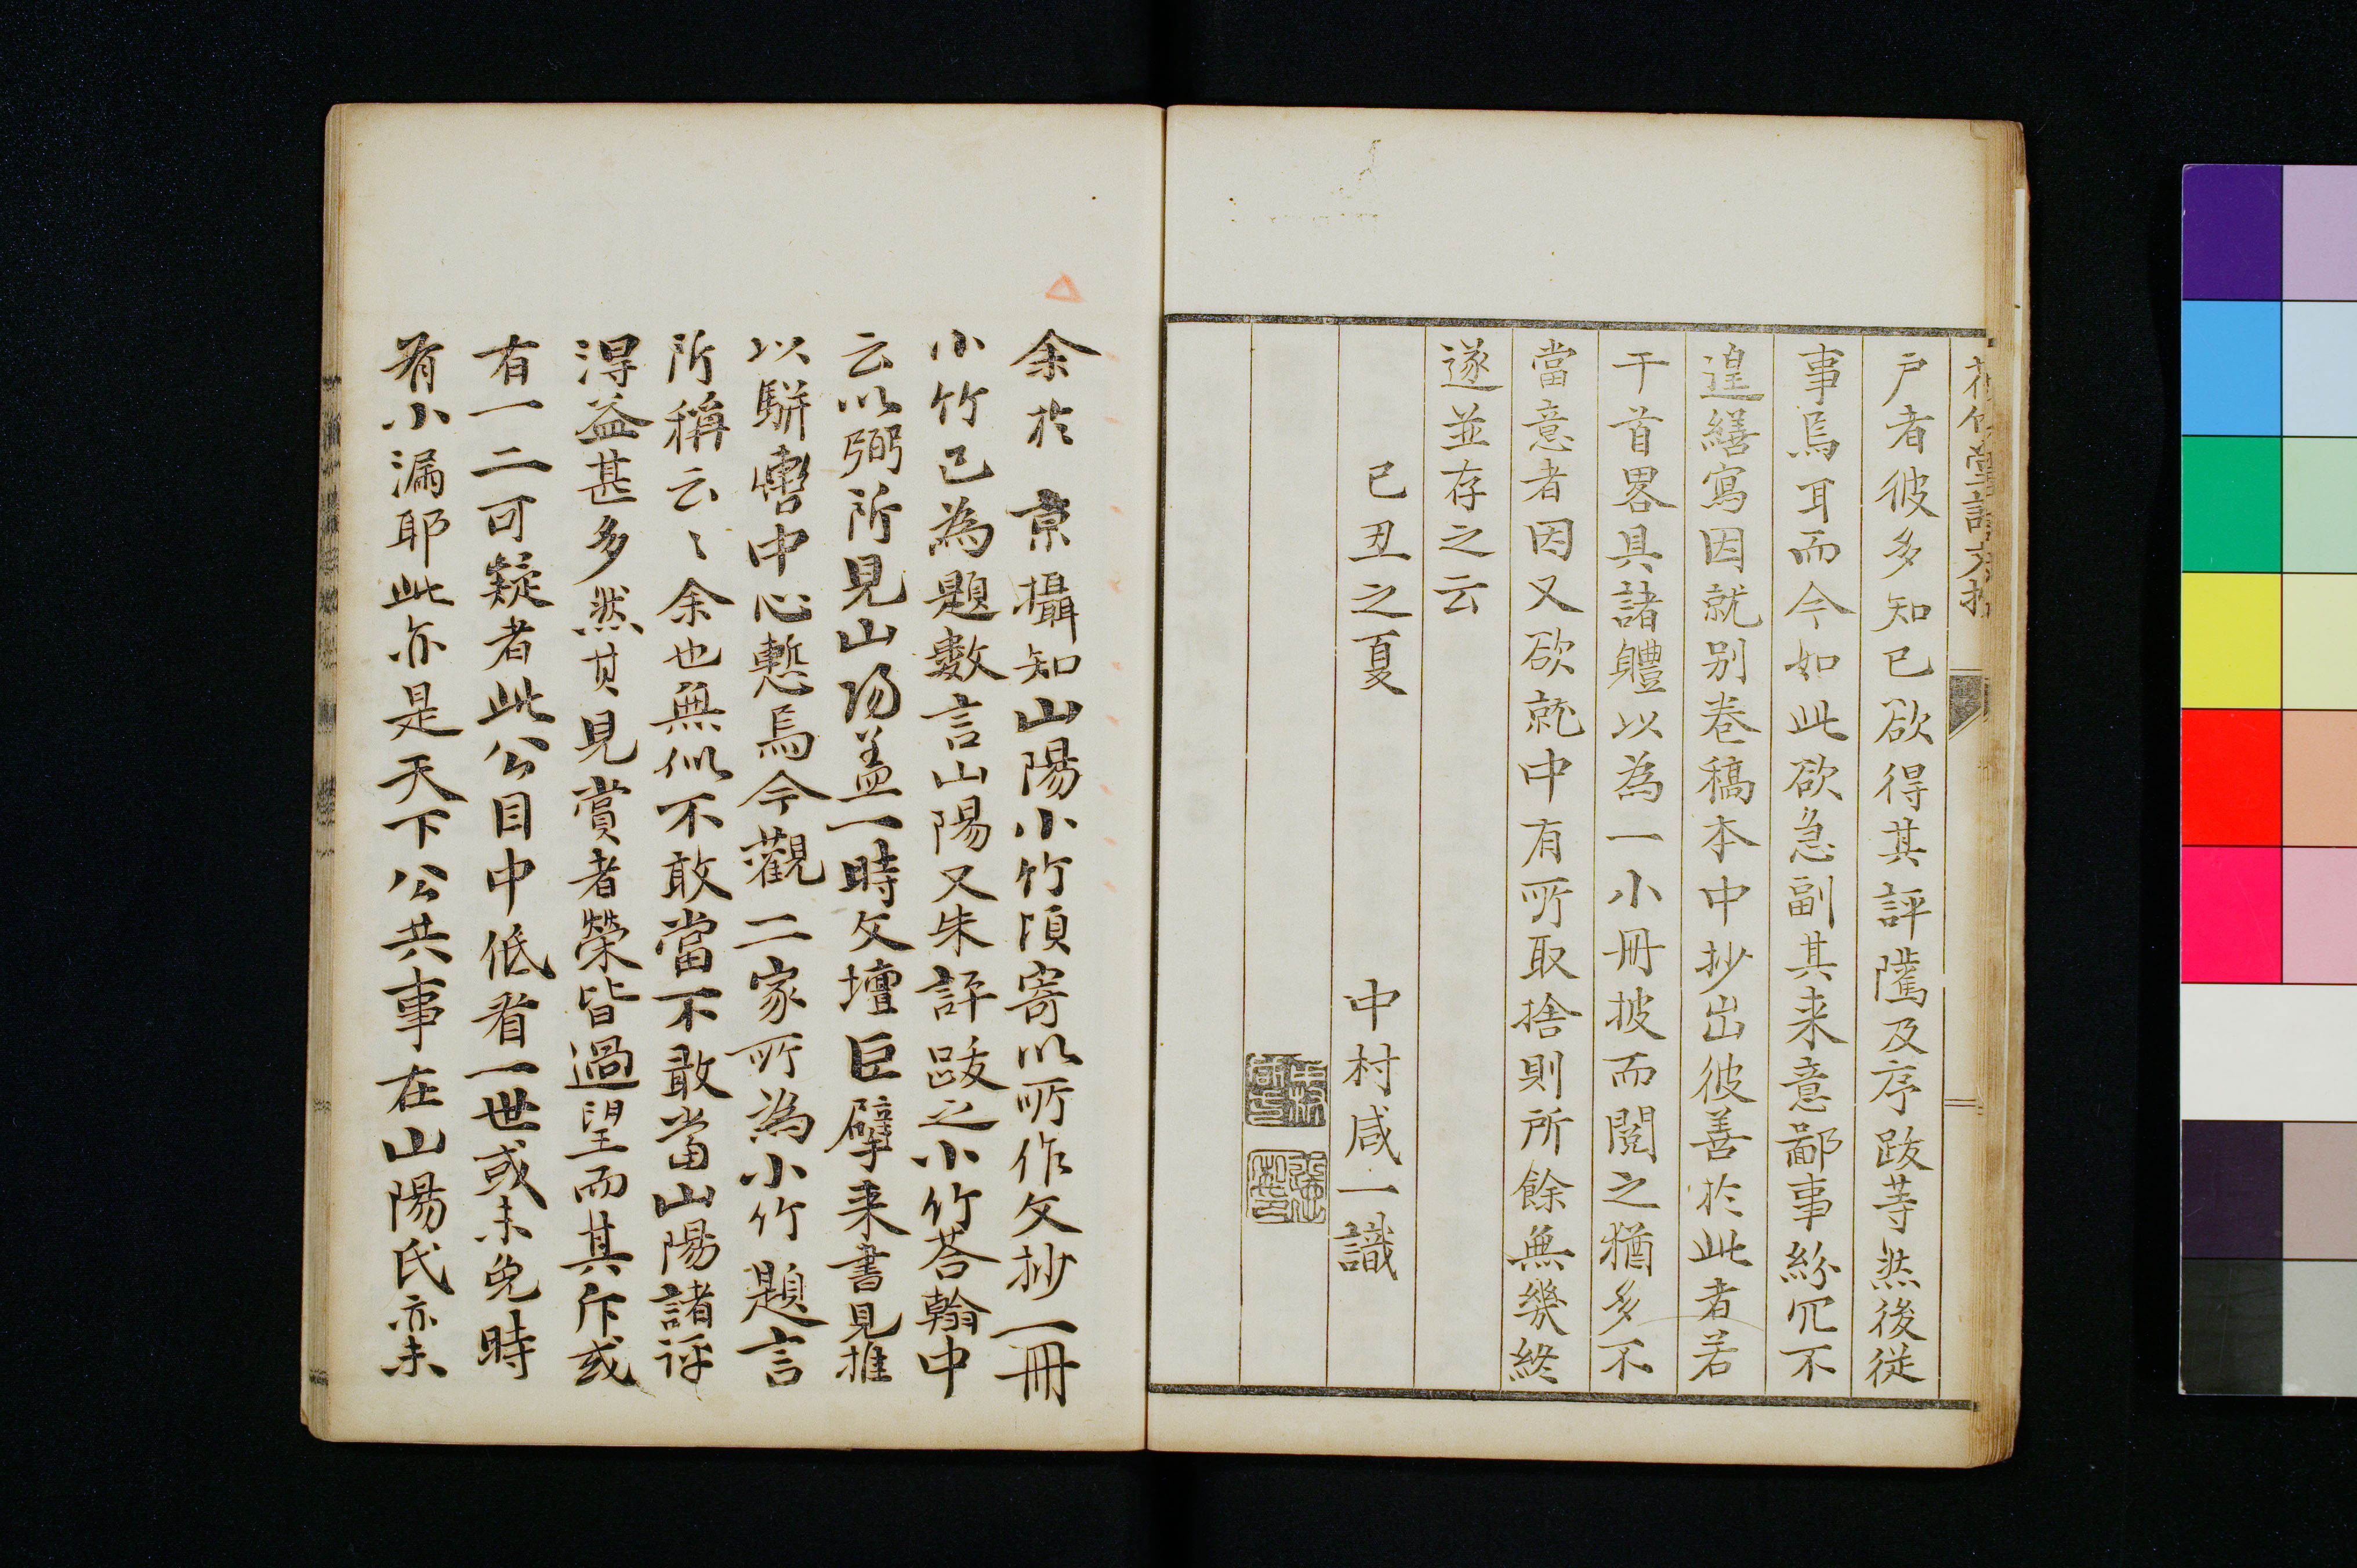 戶者彼多知已欲得其評隲及序跋等然後從
事焉耳而今如此欲急副其来意鄙事紛冗不
遑繕寫因就别卷稿本中抄出彼善於此者若
干首畧具諸軆以為一小冊披而閲之猶多不
當意者因又欲就中有所取捨則所餘無幾終
遂並存之云
己丑之夏
中村咸一識
余於 京攝知山陽小竹頃寄以所作文抄一冊
小竹已為題數言山陽又朱評跋之小竹荅翰中
云以弼所見山陽盖一時文壇巨擘来書見推
以駢轡中心慙焉今觀二家所為小竹題言
所稱云〻余也無似不敢當不敢當山陽諸評
淂益甚多然其見賞者榮皆過望而其斥或
有一二可疑者此公目中低看一世或未免時
有小漏耶此亦是天下公共事在山陽氏亦未